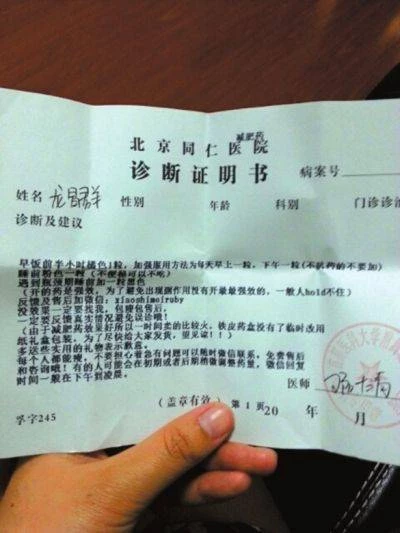 减肥药
北京同仁医院
诊断证明书
病案号
姓名 性别 年龄 科别 门诊诊
诊断及建议
早饭前半小时橘色1粒，加强服用方法为每天早上一粒，下午一粒(不扒药的不要加)
睡前粉色一粒(不便秘可以不吃)
遇到瓶颈期睡前加一粒黑色
(开的药是强效，为了避免出现副作用没有开最最强效的，一般人hold不住)
反馈及售后加微信：xiaoshimeiruby
没效果一定要找我，包瘦包售后，
一定要反馈真实情况避免误诊哦！
(由于减肥药效果好所以一时间卖的比较火，铁皮药盒没有了临时改用
纸礼盒包装，为了尽快给大家发货，望见谅！！)
多送些实用的礼物表示歉意。
每个人都能瘦，不要担心着急有问题可以随时微信联系，免费售后
和咨询哦！有的人可能会在初期或者后期稍微调整药量，微信回复
时间一般在下午到凌晨。
医师
(盖章有效) 第1页20 年 月
孚字245